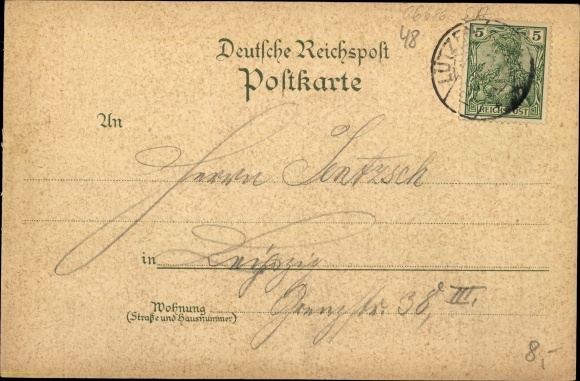 48
Deutsche Reichspost
Postkarte
5 5
REICHSPOST
LÜTZE
An
Herrn Jentzsch
in Leipzig
Wohnung
(Straße und Hausnummer)
Grenzstr. 38, III.
8,-